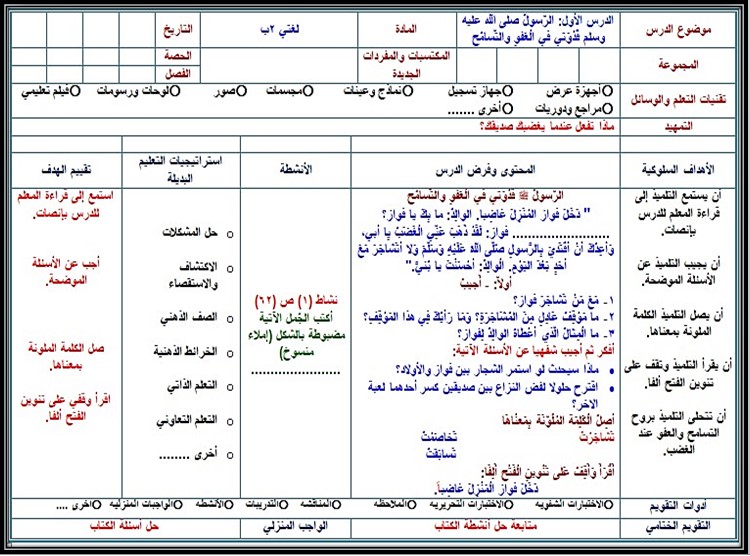 موضوع الدرس
الدرس الأول: الرّسولُ صلى الله عليه وسلم قُدْوَتي في العَفوِ والتَّسامُحِ
المادة
لغتي ٢ب
التاريخ
المجموعة
المكتسبات والمفردات الجديدة
الحصة
الفصل
تقنيات التعلم والوسائل
أجهزة عرض
جهاز تسجيل
نماذج وعينات
مجسمات
صور
لوحات ورسومات
فيلم تعليمي
مراجع ودوريات
أخرى .......
التمهيد
ماذا تفعل عندما يغضبك صديقك؟
الأهداف السلوكية
المحتوى وفرض الدرس
الأنشطة
استراتيجيات التعليم البديلة
تقييم الهدف
أن يستمع التلميذ إلى قراءة المعلم للدرس بإنصات.
أن يجيب التلميذ عن الأسئلة الموضحة.
أن يصل التلميذ الكلمة الملونة بمعناها.
أن يقرأ التلميذ وتقف على تنوين الفتح ألفا.
أن تتحلى التلميذ بروح التسامح والعفو عند الغضب.
الرَّسولُ ﷺ قُدْوَتي في العَفوِ والتَّسامُحِ
" دَخَلَ فَواز المَنْزِلَ غاضِبا. الوالِدُ: ما بِكَ يا فواز؟
........................ فواز: لَقَدْ ذَهَبَ عَنِّي الغَضَبُ يا أبي،
وَأعِدُكَ أنْ أقْتَدِيَ بِالرَّسولِ صَلَّى اللهُ عَلَيْهِ وَسَلَّمَ وَلا أتَشَاجَرَ مَعَ
أحَدٍ بَعْدَ اليَوْمِ. الْوالِدُ: أحْسَنْتَ يا بُنَيَّ."
أولاً: - أجيبُ
١- مَعَ مَنْ تَشاجَرَ فَواز؟
٢- ما مَوْقِفُ عادِلٍ مِنَ المُشاجَرَةِ؟ وَما رَأيُكَ في هذا المَوْقِفِ؟
٣- ما المِثالُ الَّذي أعْطاهُ الوالِدُ لِفواز؟
أفكر ثم أجيب شفهيا عن الأسئلة الآتية:
• ماذا سيحدث لو استمر الشجار بين فواز والأولاد؟
• اقترح حلولا لفض النزاع بين صديقين كسر أحدهما لعبة
الآخر؟
أصِلُ الْكَلِمَةَ المُلَوَّنَةَ بِمَعْناهَا
تَشاجَرْتُ
تَخاصَمْتُ
تَسابَقْتُ
أقْرَأُ وَأقِفُ عَلى تَنْوينِ الْفَتْحِ ألِفًا:
دَخَلَ فَوازُ الْمَنْزِلَ غاضِباً.
نشاط (١) ص (٦٢)
أكتب الجُمل الآتية مضبوطة بالشكل (إملاء منسوخ)
......................
حل المشكلات
الاكتشاف والاستقصاء
الصف الذهني
الخرائط الذهنية
التعلم الذاتي
التعلم التعاوني
أخرى ........
استمع إلى قراءة المعلم للدرس بإنصات.
أجب عن الأسئلة الموضحة.
صل الكلمة الملونة بمعناها.
اقرأ وقفي على تنوين الفتح ألفا.
أدوات التقويم
الاختبارات الشفويه
الاختبارات التحريريه
الملاحظه
المناقشه
التدريبات
الأنشطه
الواجبات المنزليه
اخرى ....
التقويم الختامي
متابعة حل أنشطة الكتاب
الواجب المنزلي
حل أسئلة الكتاب